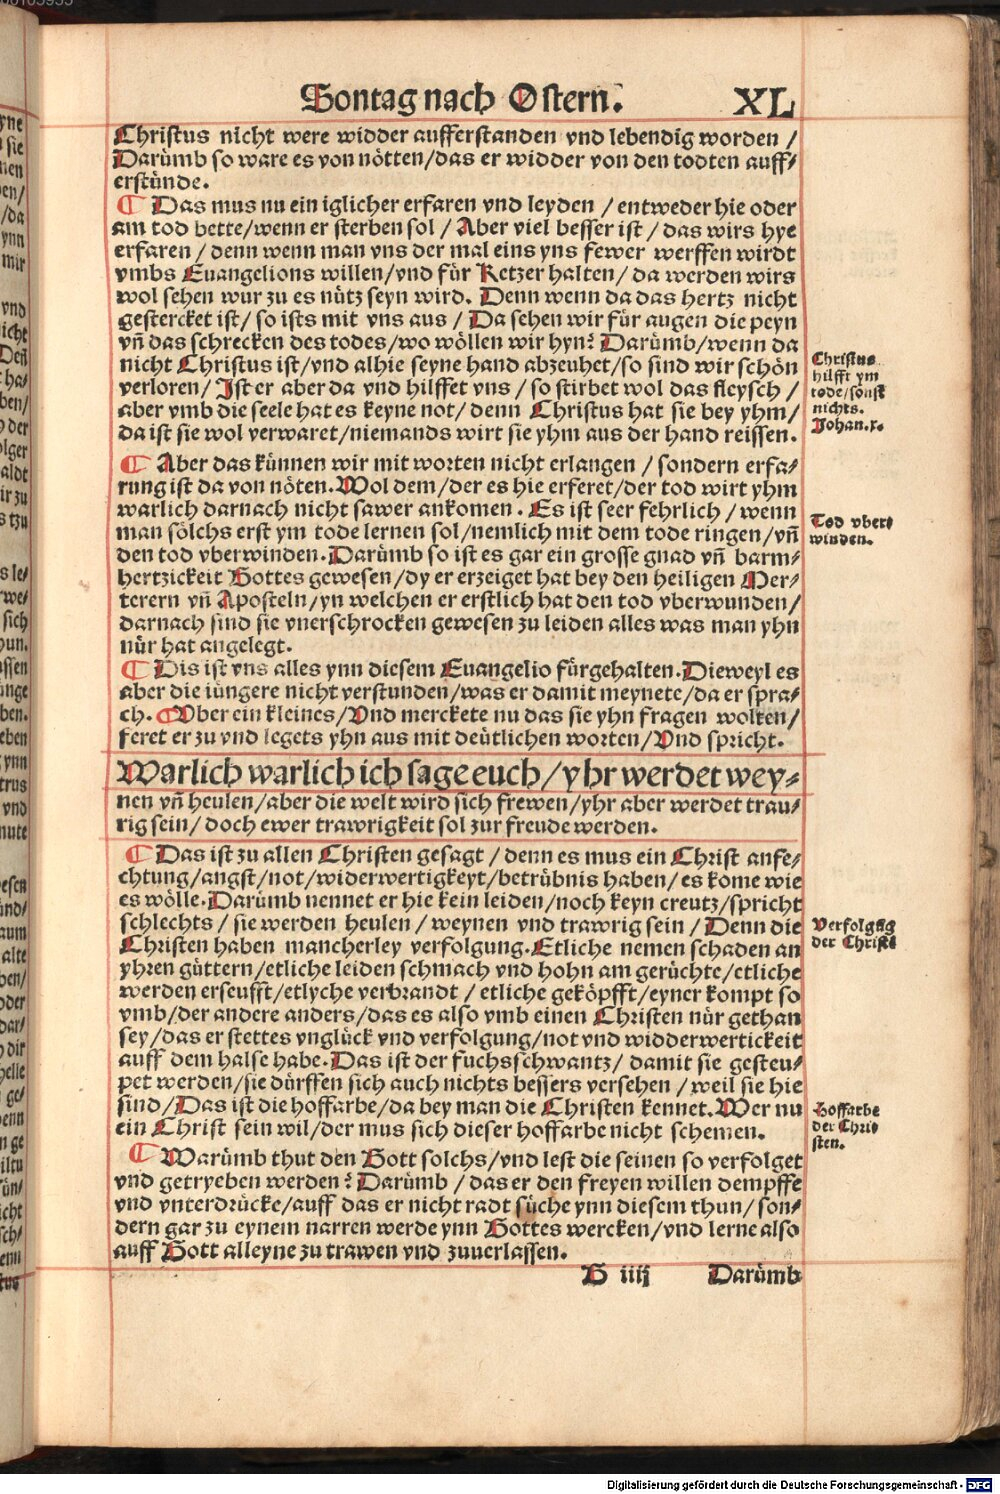 Sontag nach Ostern. XL
Christus nicht were widder aufferstanden vnd lebendig worden /
Darümb so ware es von nötten/das er widder von den todten auff⸗
erstünde.
¶ Das mus nu ein iglicher erfaren vnd leyden / entweder hie oder
am tod bette/wenn er sterben sol / Aber viel besser ist / das wirs hye
erfaren / denn wenn man vns der mal eins yns fewer werffen wirdt
vmbs Euangelions willen/vnd für Ketzer halten / da werden wirs
wol sehen wur zu es nütz seyn wird. Denn wenn da das hertz nicht
gestercket ist/ so ists mit vns aus / Da sehen wir für augen die peyn
vñ das schrecken des todes/wo wöllen wir hyn? Darümb/wenn da
nicht Christus ist/vnd alhie seyne hand abzeuhet/so sind wir schön
verloren/ Ist er aber da vnd hilffet vns / so stirbet wol das fleysch /
aber vmb die seele hat es keyne not/ denn Christus hat sie bey yhm/
da ist sie wol verwaret/niemands wirt sie yhm aus der hand reissen.
Christus
hilfft ym
tode/sonst
nichts.
Johan.x.
¶ Aber das künnen wir mit worten nicht erlangen / sondern erfa⸗
rung ist da von nöten. Wol dem/der es hie erferet/der tod wirt yhm
warlich darnach nicht sawer ankomen. Es ist seer fehrlich / wenn
man sölchs erst ym tode lernen sol/nemlich mit dem tode ringen/vñ
den tod vberwinden. Darümb so ist es gar ein grosse gnad vñ barm⸗
hertzickeit Gottes gewesen/dy er erzeiget hat bey den heiligen Mer⸗
terern vñ Aposteln/yn welchen er erstlich hat den tod vberwunden/
darnach sind sie vnerschrocken gewesen zu leiden alles was man yhn
nür hat angelegt.
Tod vber⸗
winden.
¶ Dis ist vns alles ynn diesem Euangelio fürgehalten. Dieweyl es
aber die iüngere nicht verstunden/was er damit meynete/da er spra⸗
ch. ¶ Vber ein kleines/Vnd merckete nu das sie yhn fragen wolten/
feret er zu vnd legets yhn aus mit deütlichen worten/Vnd spricht.
Warlich warlich ich sage euch/yhr werdet wey⸗
nen vñ heulen/aber die welt wird sich frewen/yhr aber werdet trau⸗
rig sein/ doch ewer trawrigkeit sol zur freude werden.
¶ Das ist zu allen Christen gesagt / denn es mus ein Christ anfe⸗
chtung/angst/not/widerwertigkeyt/betrübnis haben/es kome wie
es wölle. Darümb nennet er hie kein leiden/noch keyn creutz/spricht
schlechts / sie werden heulen / weynen vnd trawrig sein / Denn die
Christen haben mancherley verfolgung. Etliche nemen schaden an
yhren güttern/etliche leiden schmach vnd hohn am gerüchte/etliche
werden erseufft/etlyche verbrandt / etliche geköpfft/eyner kompt so
vmb/der andere anders/das es also vmb einen Christen nür gethan
sey/das er stettes vnglück vnd verfolgung/not vnd widderwertickeit
auff dem halse habe. Das ist der fuchsschwantz/ damit sie gesteu⸗
pet werden/sie dürffen sich auch nichts bessers versehen / weil sie hie
sind/Das ist die hoffarbe/da bey man die Christen kennet. Wer nu
ein Christ sein wil/der mus sich dieser hoffarbe nicht schemen.
Verfolgũg
der Christē
Hoffarbe
der Chri⸗
sten.
¶ Warümb thut den Gott solchs/vnd lest die seinen so verfolget
vnd getryeben werden? Darümb / das er den freyen willen dempffe
vnd vnterdrücke/auff das er nicht radt süche ynn diesem thun/ son⸗
dern gar zu eynem narren werde ynn Gottes wercken/vnd lerne also
auff Gott alleyne zu trawen vnd zuuerlassen.
G iiij Darümb
Digitalisierung gefördert durch die Deutsche Forschungsgemeinschaft - DFG